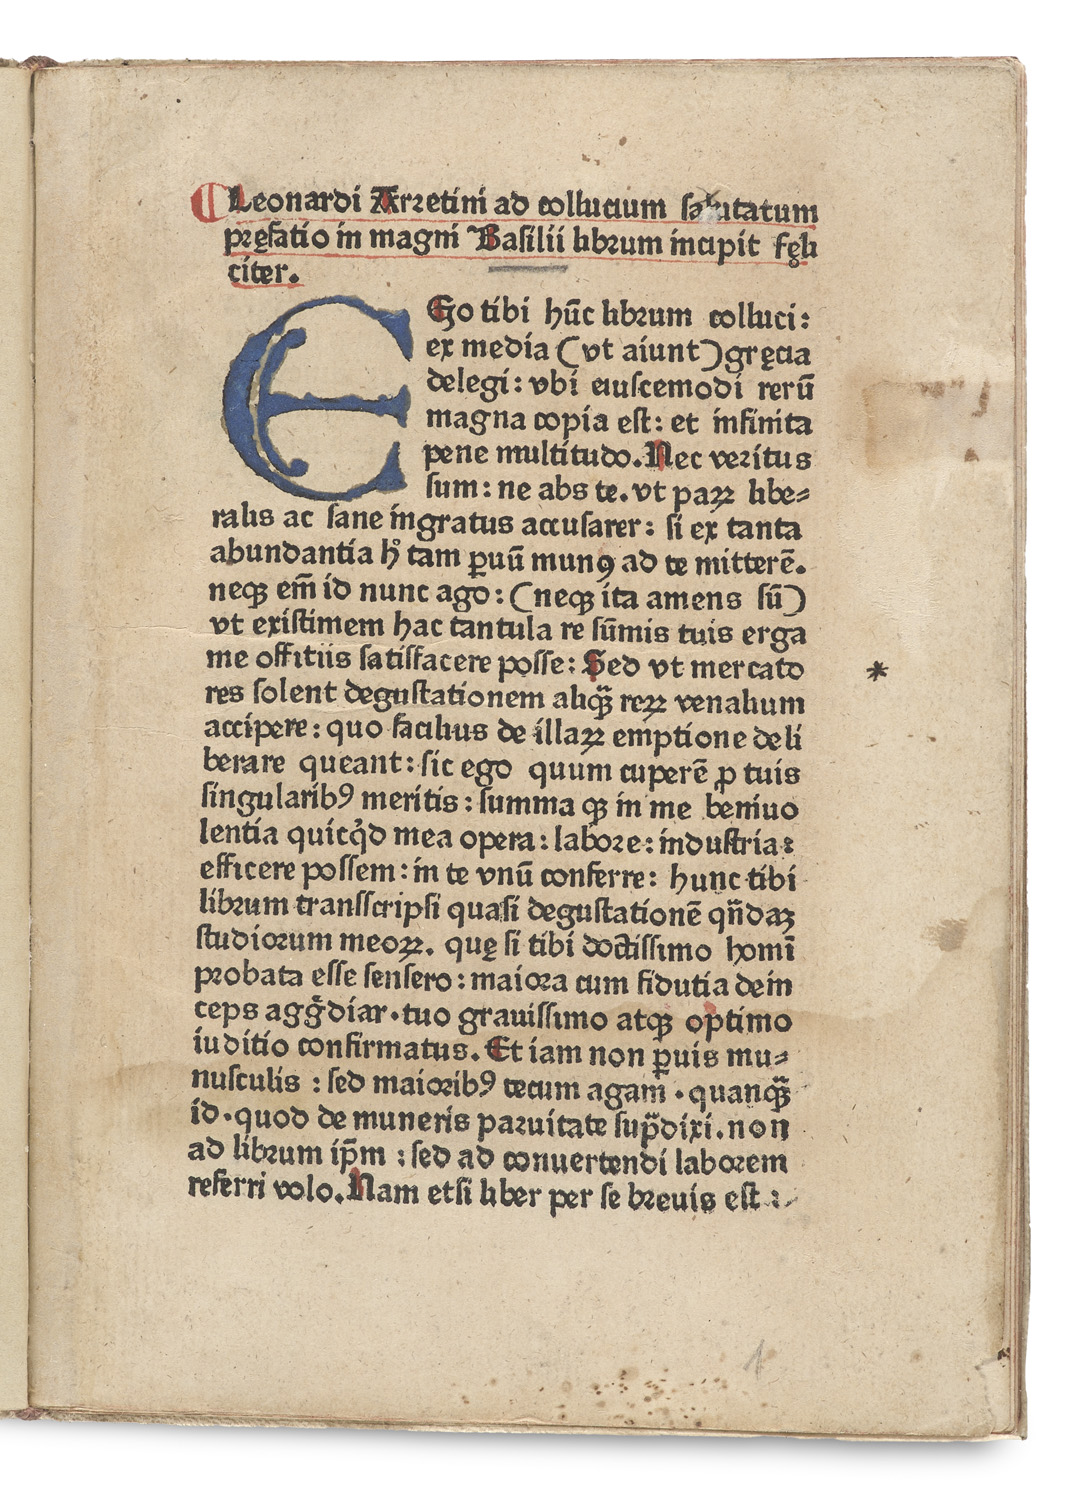 Leonardi Arretini ad collucium salutatum
pręfatio in magni Basilii librum incipit fęli
citer.
EGo tibi hūc librum colluci:
ex media (vt aiunt) gręcia
delegi: vbi eiuscemodi rerū
magna copia est: et infinita
pene multitudo. Nec veritus
sum: ne abs te. vt paꝝ libe⸗
ralis ac sane ingratus accusarer: si ex tanta
abundantia hͦ tam ꝑuū munꝰ ad te mitterē.
neqꝫ em̄ id nunc ago: (neqꝫ ita amens sū)
vt existimem hac tantula re sūmis tuis erga
me offitiis satisfacere posse: Sed vt mercato
res solent degustationem aliqꝫ̄ reꝝ venalium
accipere: quo facilius de illaꝝ emptione deli
berare queant: sic ego quum cuperē ꝓ tuis
singularibꝰ meritis: summa qꝫ in me beniuo
lentia quicqͥd mea opera: labore: industria:
efficere possem: in te vnū conferre: hunc tibi
librum transscripsi quasi degustationē qn̄daꝫ
studiorum meoꝝ. quę si tibi doctissimo homī
probata esse sensero: maiora cum fidutia dein
ceps aggͤdiar. tuo grauissimo atqꝫ optimo
iuditio confirmatus. Et iam non ꝑuis mu⸗
nusculis: sed maioribꝰ tecum agam. quanqꝫ̄
id. quod de muneris paruitate sup̄dixi. non
ad librum ip̄m: sed ad conuertendi laborem
referri volo. Nam etsi liber per se breuis est:
*
1